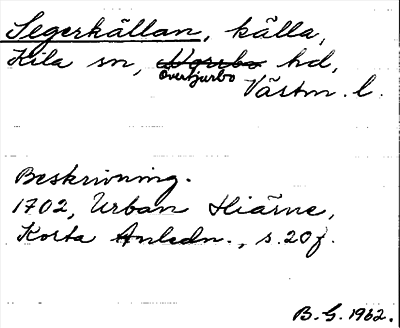 Segerkällan, källa,
Kila sn, Norrbo hd,
Övertjurbo
Västm. l.
Beskrivning.
1702, Urban Hiärne,
Korta Anledn., s. 20 f.
B. G. 1962.